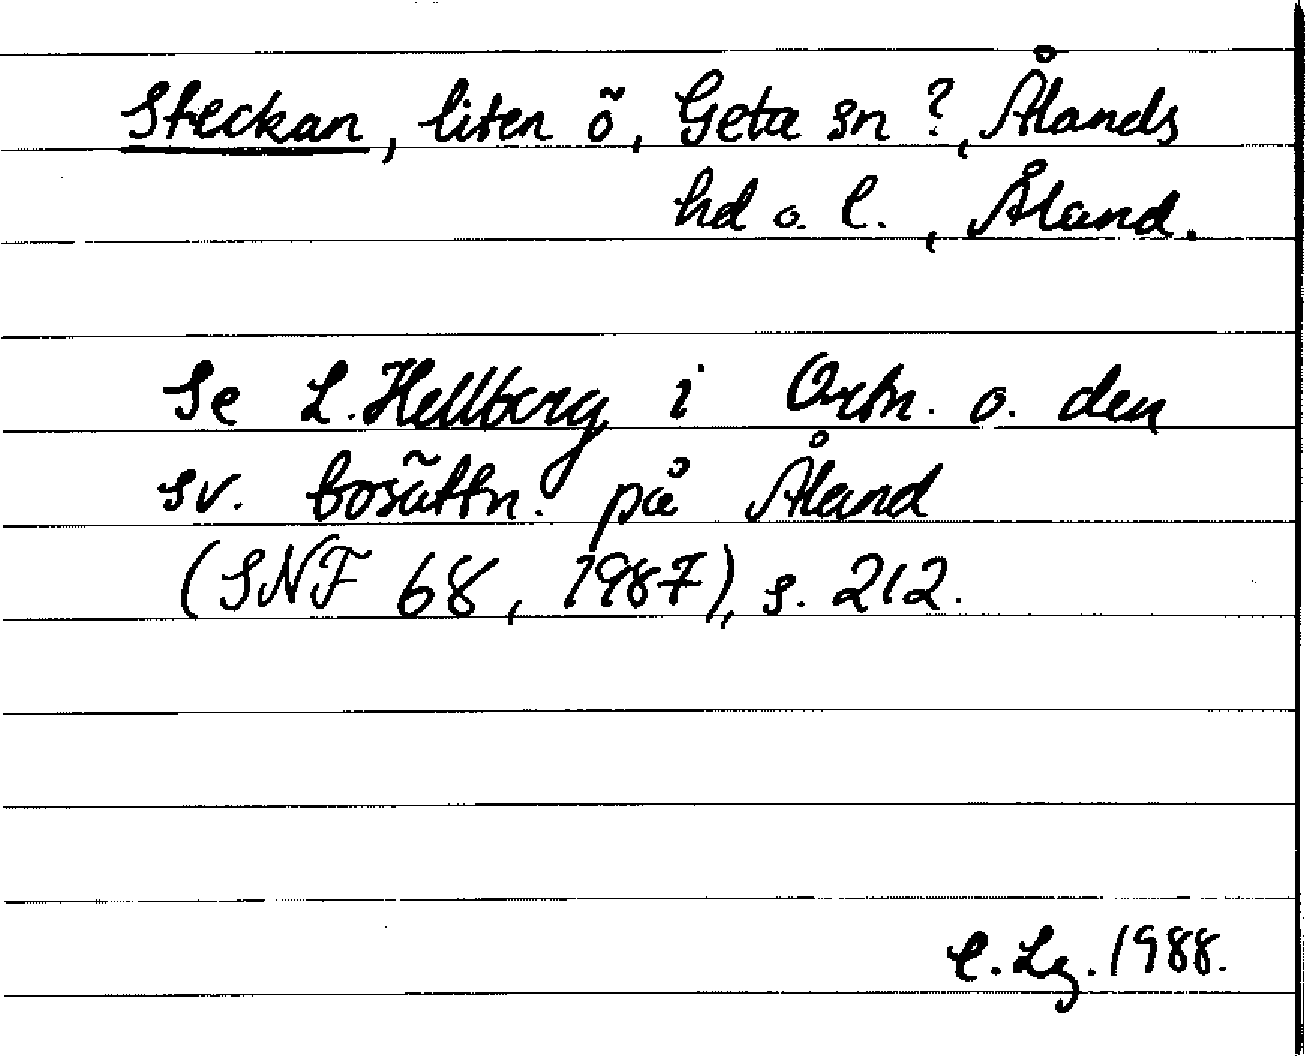 Steckan, liten ö, Geta sn?, Ålands
hd o. l., Åland.
Se L. Hellberg i Ortn. o. den
sv. bosättn. på Åland
(SNF 68, 1987), s. 212.
C. Lg. 1988.